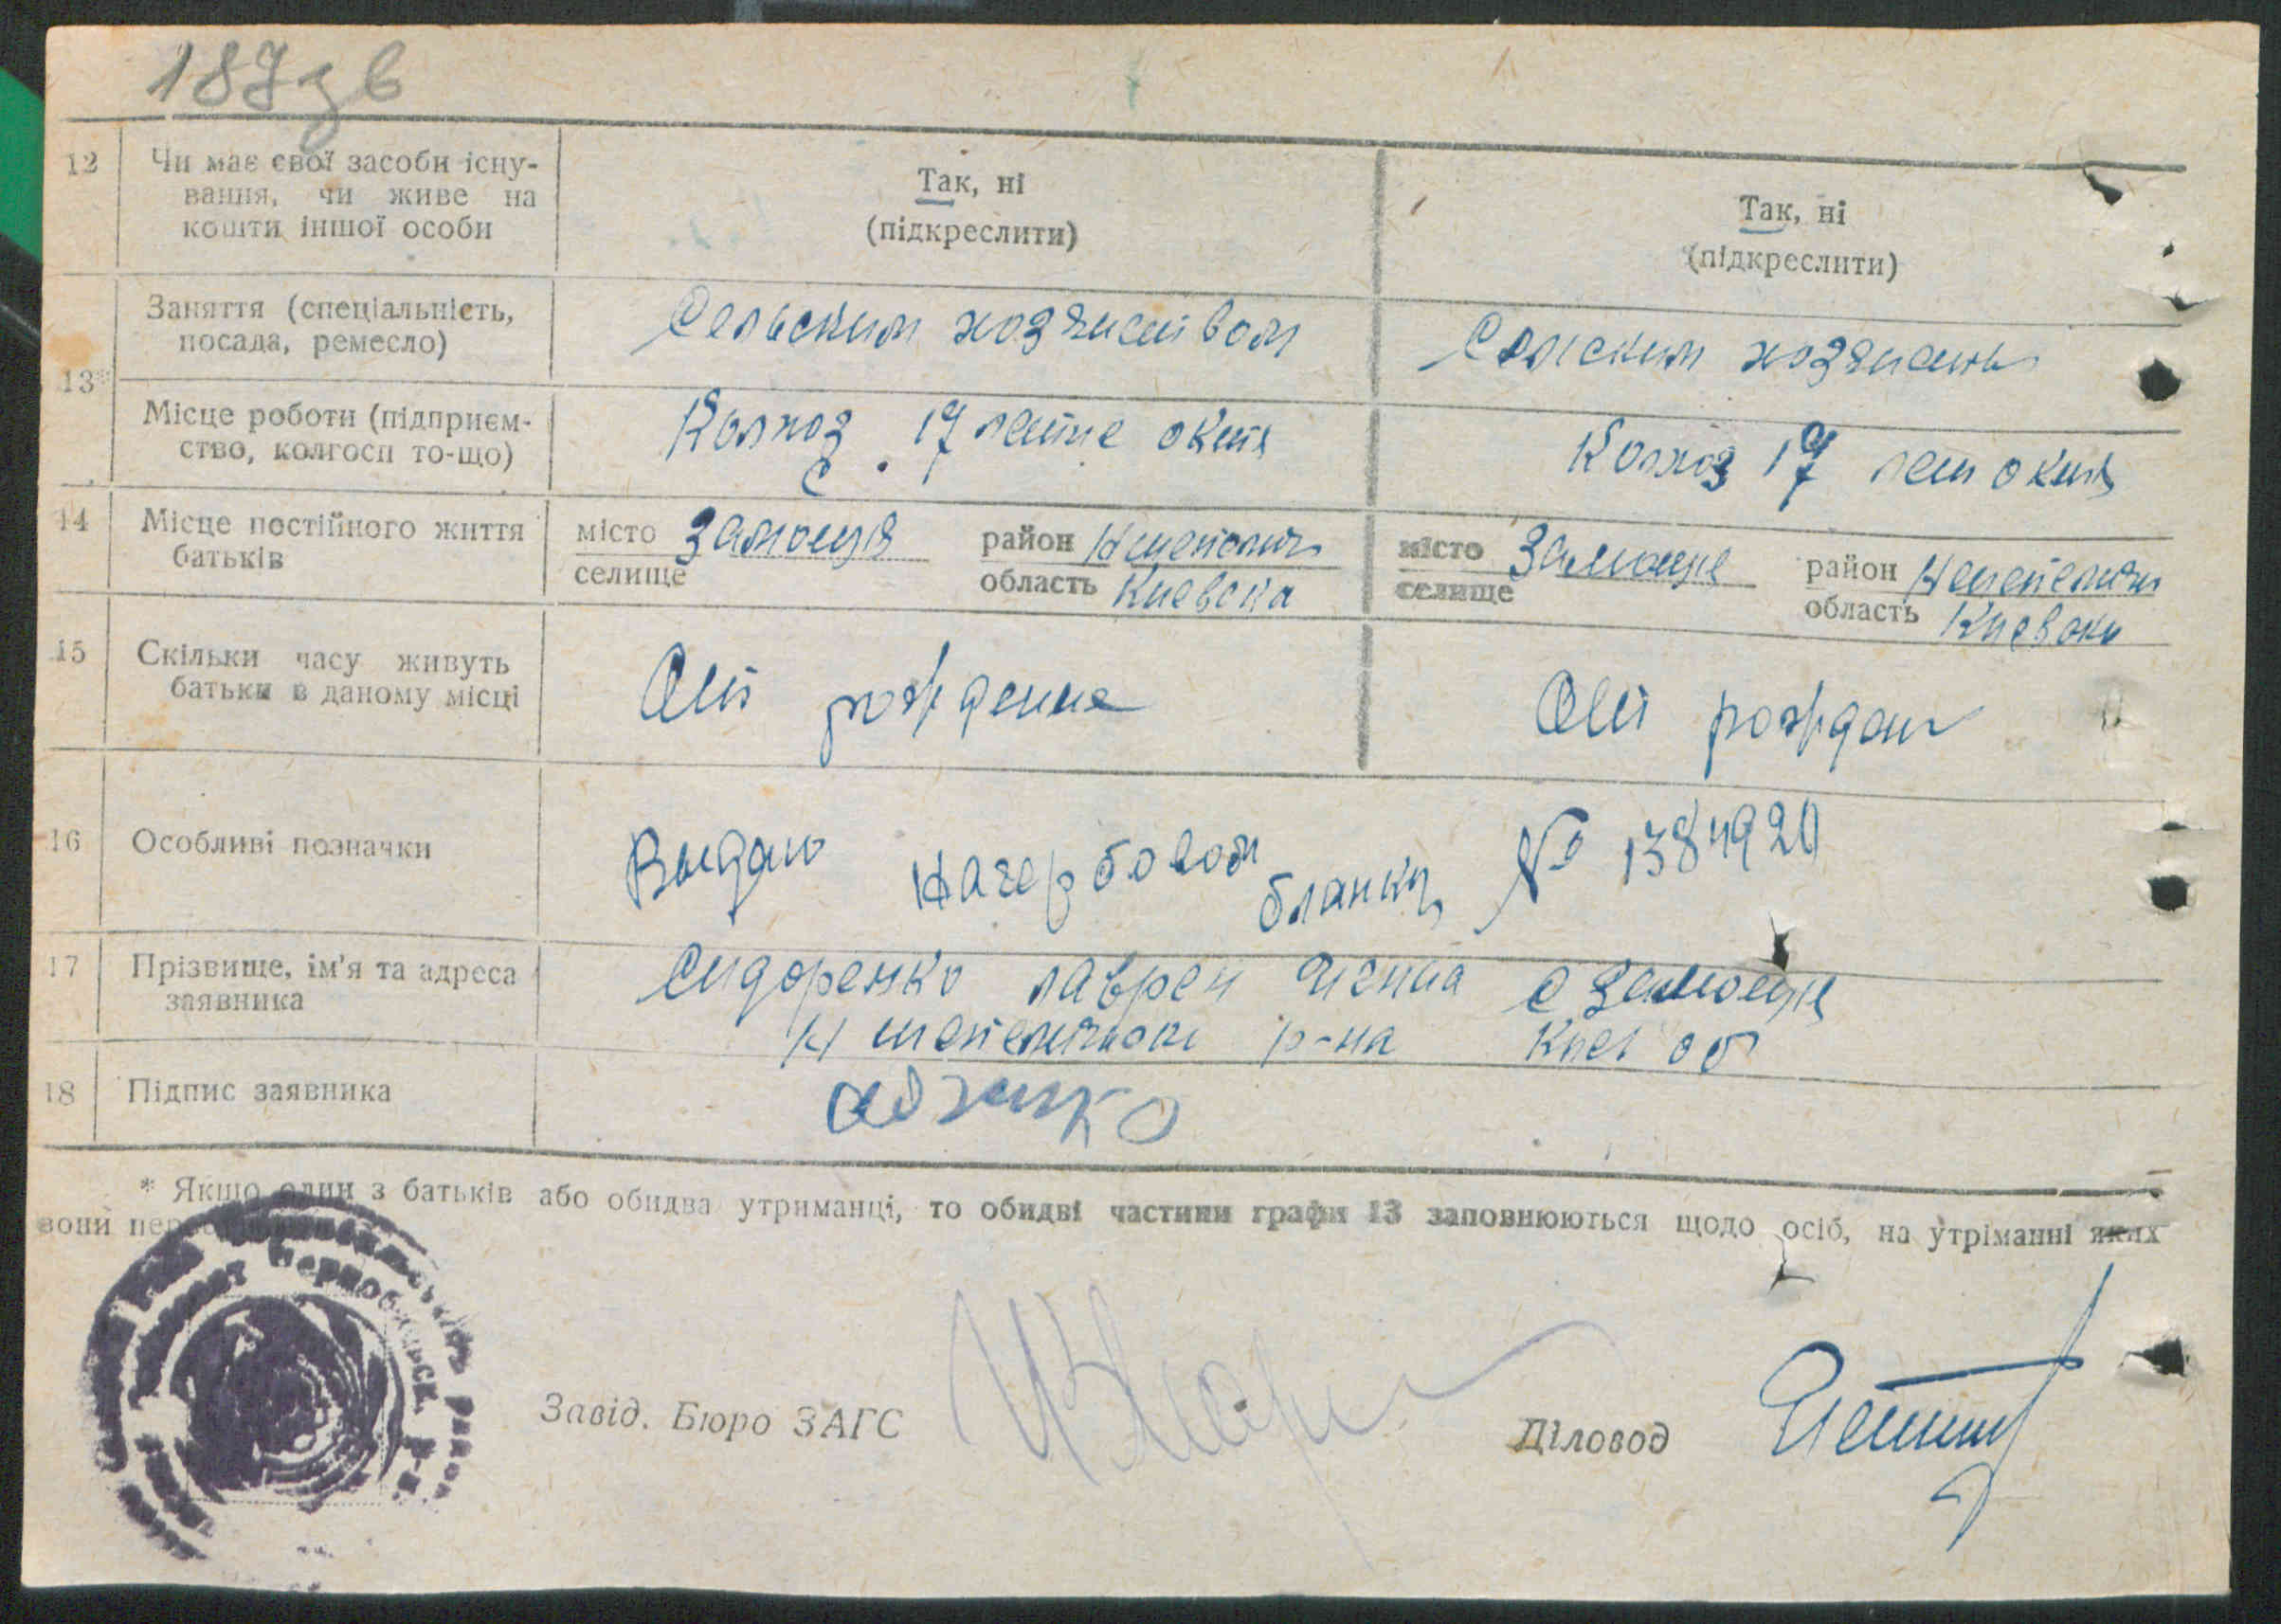 187зв
12 Чи має свої засоби існу-
вання, чи живе на
кошти іншої особи
Так, ні
(підкреслити)
Так, ні
(підкреслити)
13*
Заняття (спеціальність,
посада, ремесло)
Сельским хозяиством
Селským хозяиств
Місце роботи (підприєм-
ство, колгосп то-що)
Колхоз 17 летие октя
Колхоз 17 лет октя
14 Місце постійного життя
батьків
місто
селище
Замощя
район Ншепелич
область Киевска
місто
селище
Замоще
район Ншепелич
область Киевск
15 Скільки часу живуть
батьки в даному місці
От рождение
От рождан
16 Особливі позначки
Выдано на гербовом бланку № 1384920
17 Прізвище, ім'я та адреса
заявника
Сидоренко лаврен с Замоще
Н шепеличск р-на Киев об
18 Підпис заявника
* Якщо один з батьків або обидва утриманці, то обидві частини графи 13 заповнюються щодо осіб, на утріманні яких
вони
Завід. Бюро ЗАГС
Діловод